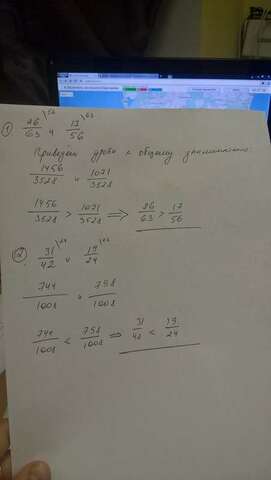 1) 26/63 \56 и 17/56 \63
Приведём дроби к общему знаменателю
1456/3528 и 1071/3528
1456/3528 > 1071/3528 ⇒ 26/63 > 17/56
2) 31/42 \24 и 19/24 \42
744/1008 и 798/1008
744/1008 < 798/1008 ⇒ 31/42 < 19/24